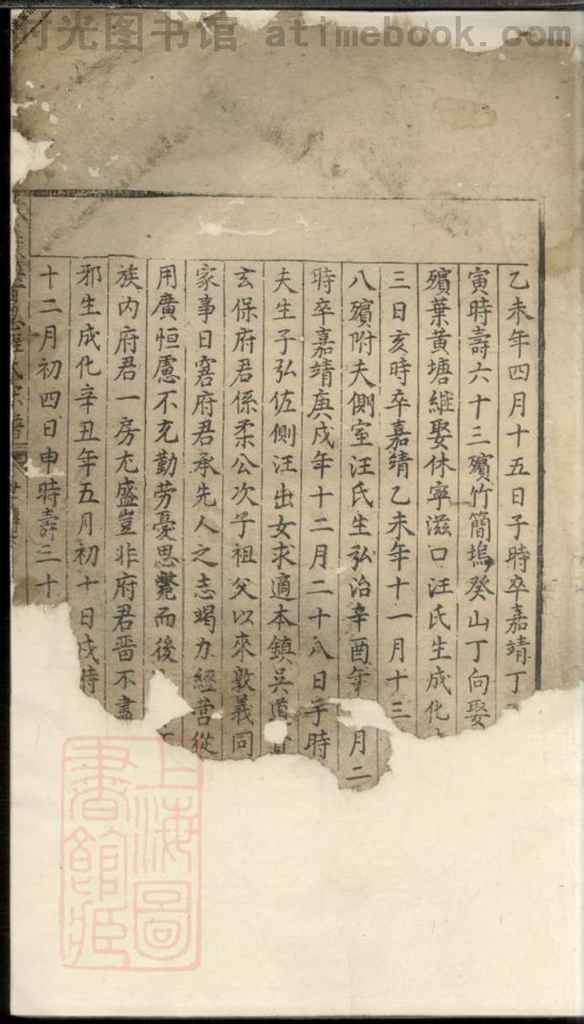 时光图书馆 atimebook.com
乙未年四月十五日子時卒嘉靖丁
寅時壽六十三殯竹簡塢癸山丁向娶
殯葉黃塘繼娶休寧滋口汪氏生成化
三日亥時卒嘉靖乙未年十一月十三
八殯附夫側室汪氏生弘治辛酉年 月二
時卒嘉靖庚戌年十二月二十八日子時
夫生子弘佐側汪出女求適本鎮吳
玄保府君係柔公次子祖父以來敦義同
家事日窘府君承先人之志竭力經營從
用廣恒慮不充勤勞憂思斃而後
族内府君一房尤盛豈非府君嗇不盡
邪生成化辛丑年五月初十日戌時
十二月初四日申時壽三十
氏宗譜
上海圖書館藏